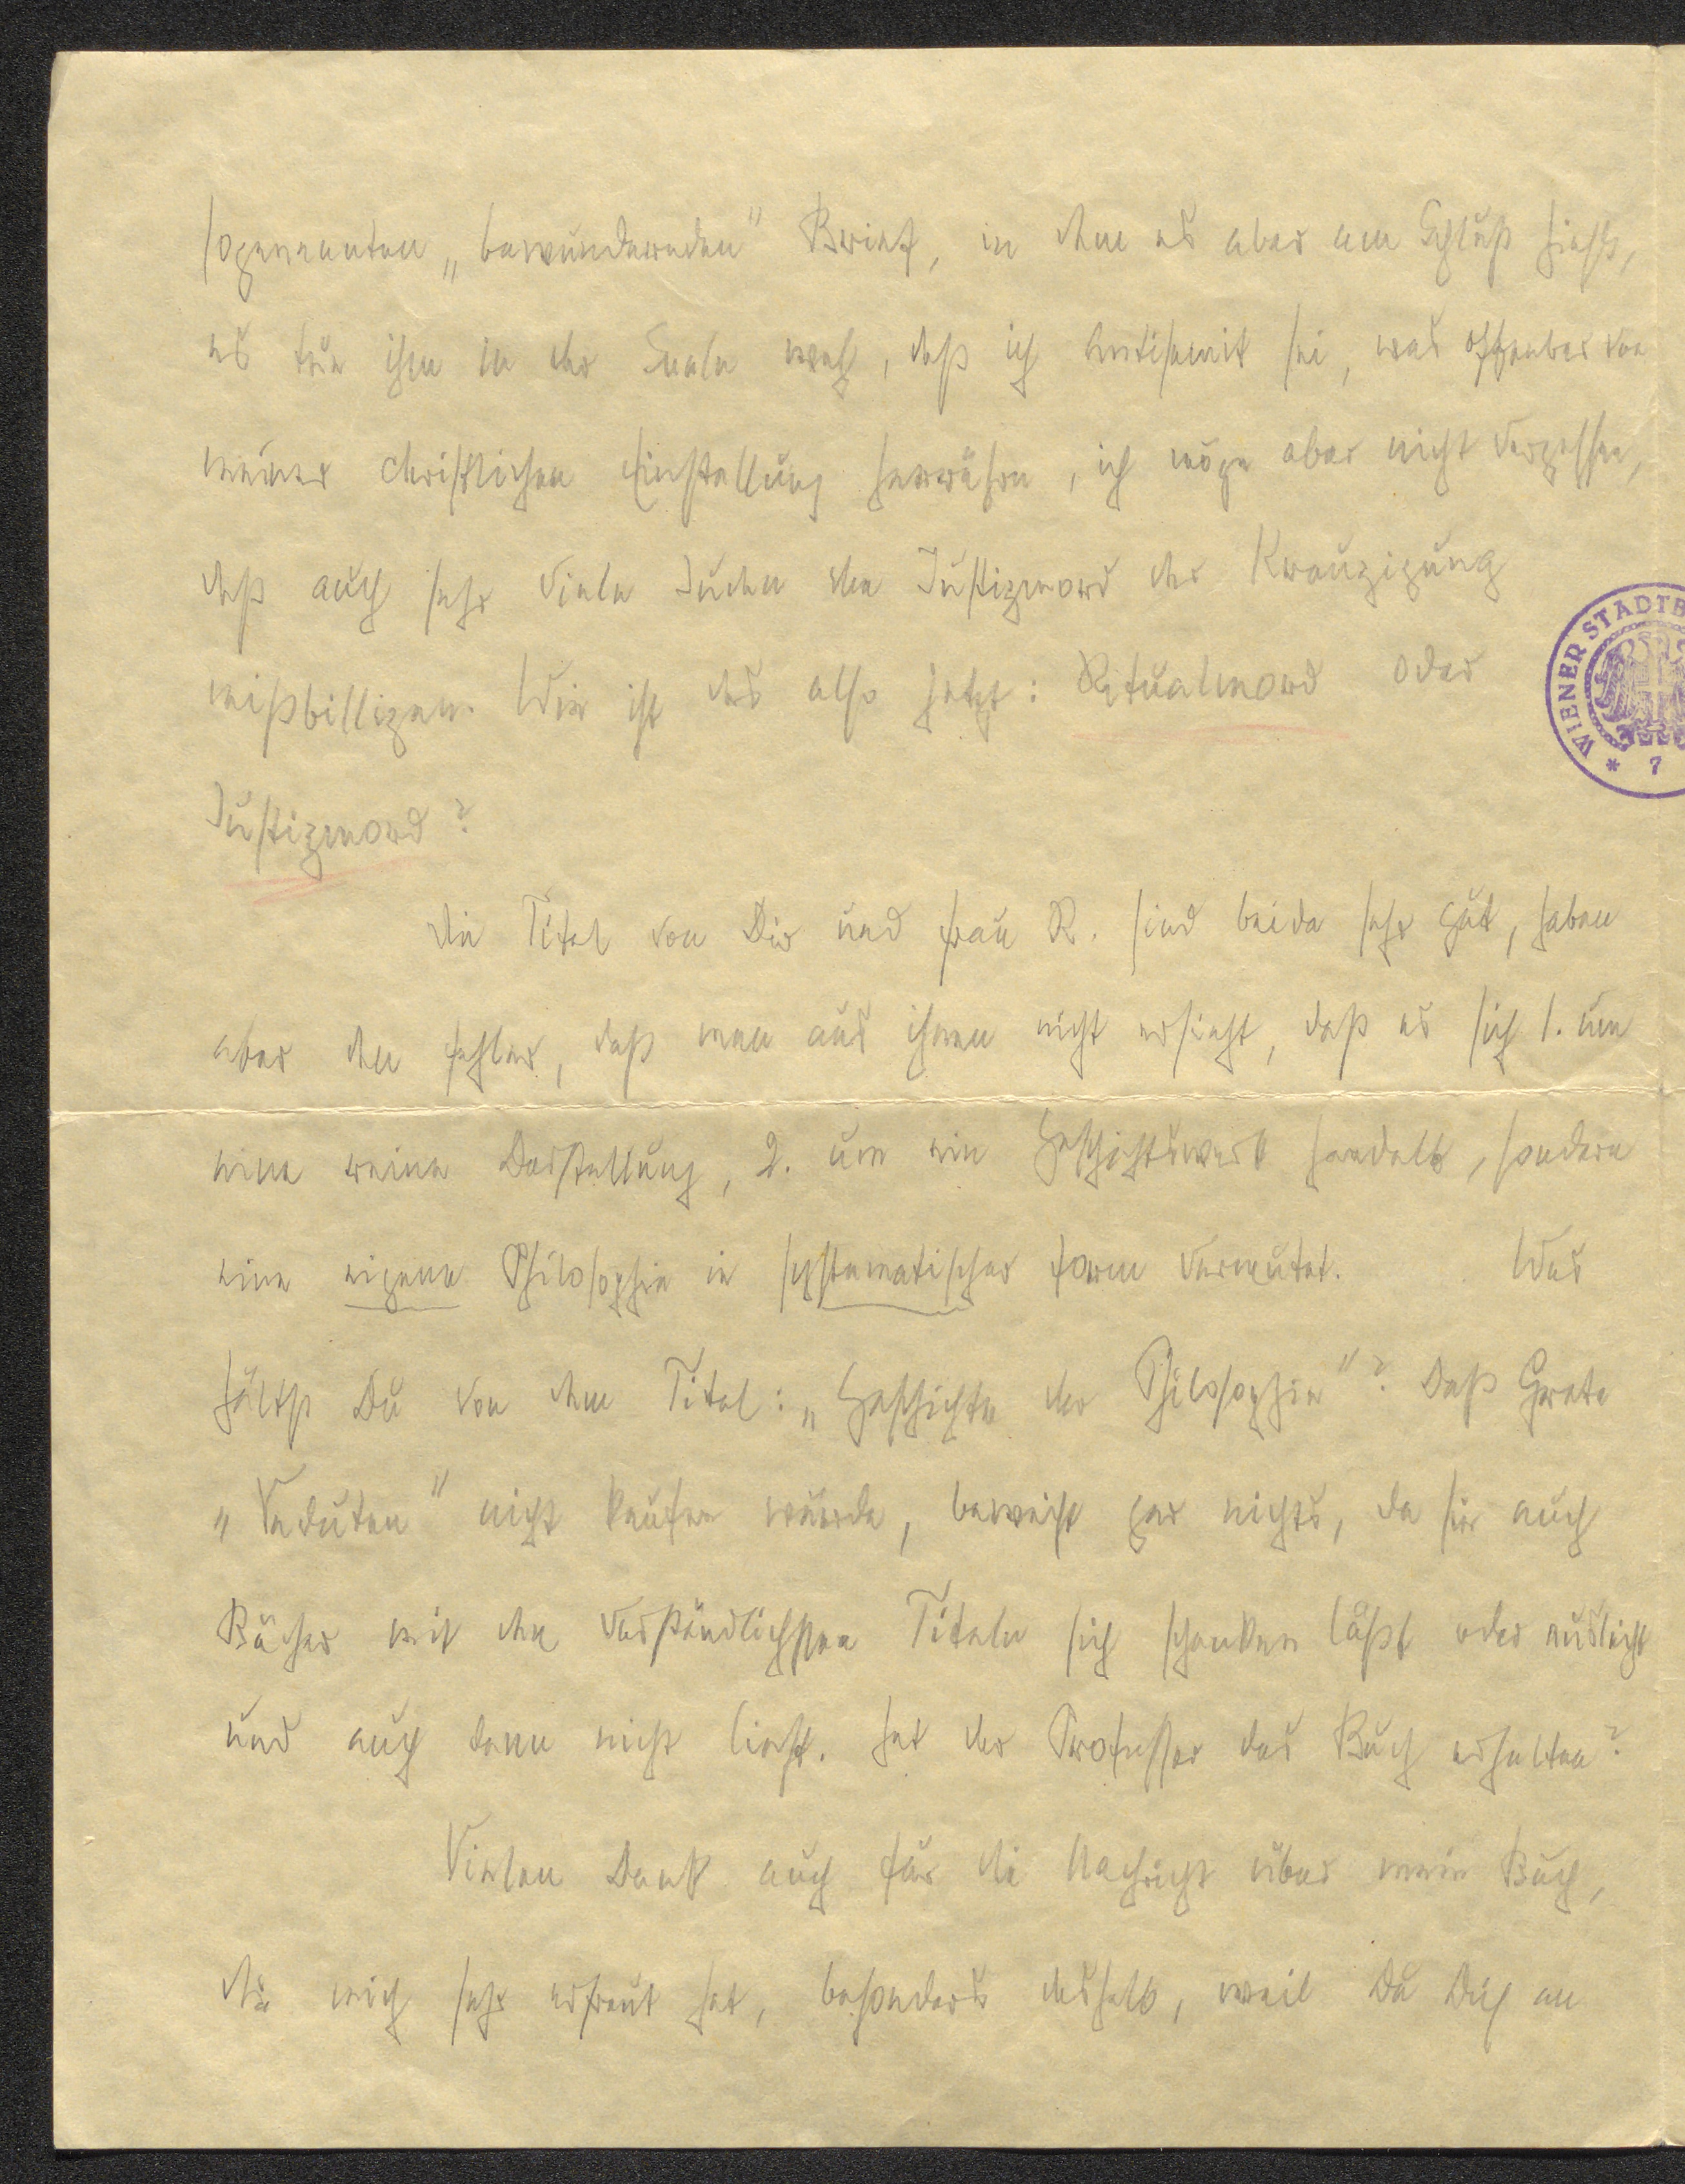 sogenannten „bewundernden" Brief, in dem es aber am Schluß hieß,
es tue ihm in der Seele weh, daß ich Antisemit sei, was offenbar von
meiner christlichen Einstellung herrühre, ich möge aber nicht vergessen,
daß auch sehr viele Juden den Justizmord der Kreuzigung
mißbilligen. Wie ist das also jetzt: Ritualmord oder
Justizmord?
Die Titel von Dir und Frau R. sind beide sehr gut, haben
aber den Fehler, daß man aus ihnen nicht ersieht, daß es sich 1. um
eine reine Darstellung, 2. um ein Geschichtswerk handelt, sondern
eine eigene Philosophie in systematischer Form vermutet. Was
hältst Du von dem Titel: „Geschichte der Philosophie"? Daß Grete
„Veduten" nicht kaufen würde, beweist gar nichts, da sie auch
Bücher mit den verständlichsten Titeln sich schenken läßt oder ausleiht
und auch dann nicht liest. Hat der Professor das Buch erhalten?
Vielen Dank auch für die Nachricht über mein Buch,
die mich sehr erfreut hat, besonders deshalb, weil Du Dich an
WIENER STADTB
* 7